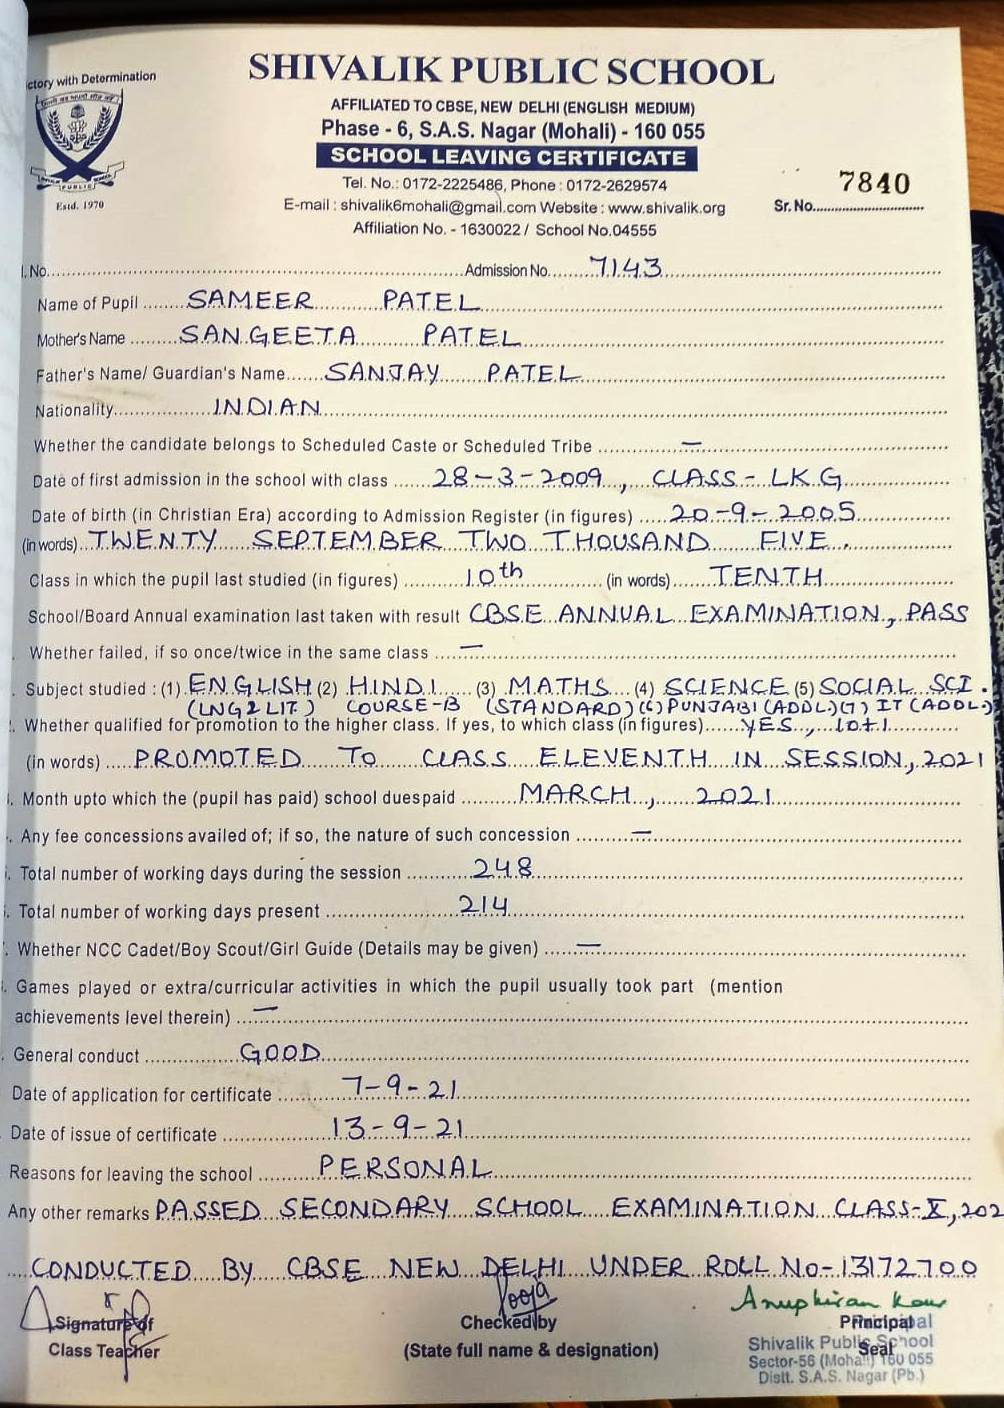 ctory with Determination
SHIVALIK PUBLIC SCHOOL
AFFILIATED TO CBSE, NEW DELHI (ENGLISH MEDIUM)
Phase - 6, S.A.S. Nagar (Mohali) - 160 055
SCHOOL LEAVING CERTIFICATE
Tel. No.: 0172-2225486, Phone : 0172-2629574
E-mail : shivalik6mohali@gmail.com Website : www.shivalik.org
Affiliation No. - 1630022 / School No.04555
PUBLIC
Estd. 1970
7840
Sr. No.
l. No. Admission No. 7143
Name of Pupil SAMEER PATEL
Mother's Name SANGEETA PATEL
Father's Name/ Guardian's Name SANJAY PATEL
Nationality INDIAN
Whether the candidate belongs to Scheduled Caste or Scheduled Tribe —
Date of first admission in the school with class 28-3-2009, CLASS- LKG
Date of birth (in Christian Era) according to Admission Register (in figures) 20-9-2005
(in words) TWENTY SEPTEMBER TWO THOUSAND FIVE.
Class in which the pupil last studied (in figures) 10th (in words) TENTH
School/Board Annual examination last taken with result CBSE ANNUAL EXAMINATION, PASS
. Whether failed, if so once/twice in the same class —
. Subject studied : (1) ENGLISH (2) HINDI (3) MATHS (4) SCIENCE (5) SOCIAL SCI.
(LNG & LIT) COURSE-B (STANDARD) (6) PUNJABI (ADDL) (7) IT (ADDL.)
. Whether qualified for promotion to the higher class. If yes, to which class (in figures) YES, 10+1
(in words) PROMOTED TO CLASS ELEVENTH IN SESSION, 2021
. Month upto which the (pupil has paid) school duespaid MARCH, 2021
. Any fee concessions availed of; if so, the nature of such concession —
. Total number of working days during the session 248
. Total number of working days present 214
. Whether NCC Cadet/Boy Scout/Girl Guide (Details may be given) —
. Games played or extra/curricular activities in which the pupil usually took part (mention
achievements level therein) —
. General conduct GOOD
Date of application for certificate 7-9-21
Date of issue of certificate 13-9-21
Reasons for leaving the school PERSONAL
Any other remarks PASSED SECONDARY SCHOOL EXAMINATION CLASS-X, 202
CONDUCTED BY CBSE NEW DELHI UNDER ROLL No-13172700
Pooja Anupkiran Kaur
Signature of Checked by Principal Principal
Class Teacher (State full name & designation) Seal
Shivalik Public School
Sector-56 (Mohali) 160 055
Distt. S.A.S. Nagar (Pb.)